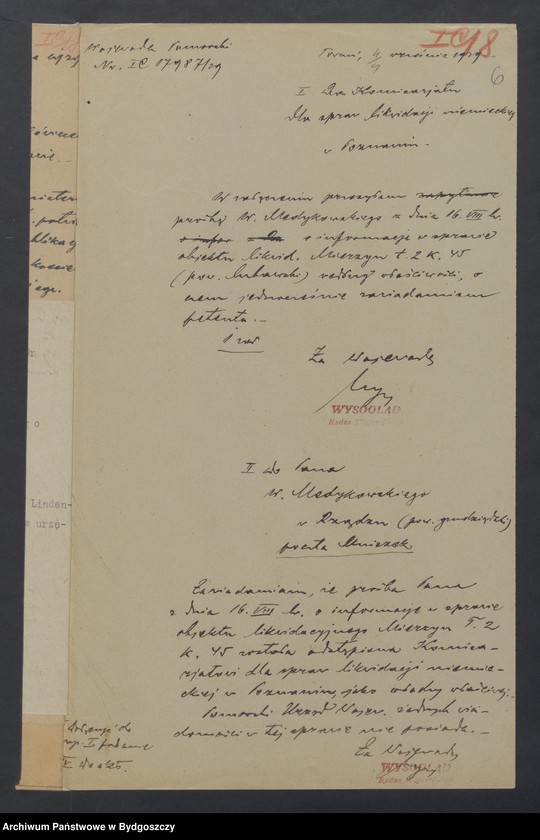 IC/8
6
Wojewoda Pomorski
Nr. IC 17987/29
Toruń, września 1929
I Do Komisarjatu
dla spraw likwidacji niemieckiej
w Poznaniu.
W załączeniu przesyłam
prośbę W. Medykowskiego z dnia 16.VIII br.
o informacje w sprawie
objektu likwid. Mierzyn t. 2 k. 45
(pow. lubawski) według właściwości, o
czem jednocześnie zawiadamiam
petenta.—
1 zał
Za Wojewodę
WYSOGLĄD
Radca
II do Pana
W. Medykowskiego
w Rządzu (pow. grudziądzki)
poczta Mniszek
Zawiadamiam, że prośba Pana
z dnia 16.VIII br. o informacje w sprawie
objektu likwidacyjnego Mierzyn T. 2
k. 45 została odstąpiona Komisa-
rjatowi dla spraw likwidacji niemie-
ckiej w Poznaniu, jako władzy właściwej.
Pomorski Urząd Wojew. żadnych wia-
domości w tej sprawie nie posiada.—
Za Wojewodę
WYSOGLĄD
Radca
Dołączyć do
I podanie
do akt.
Linden-
urzę-
Archiwum Państwowe w Bydgoszczy